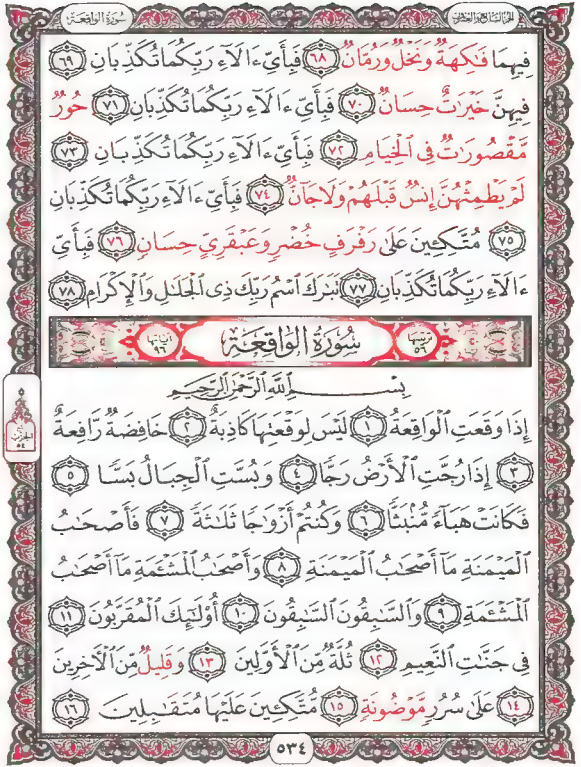 الجزء السابع والعشرون
سُورَةُ الواقِعَة
فِيهِمَا فَٰكِهَةٌ وَنَخْلٌ وَرُمَّانٌ ٦٨ فَبِأَيِّ ءَالَآءِ رَبِّكُمَا تُكَذِّبَانِ ٦٩
فِيهِنَّ خَيْرَٰتٌ حِسَانٌ ٧٠ فَبِأَيِّ ءَالَآءِ رَبِّكُمَا تُكَذِّبَانِ ٧١ حُورٌ
مَّقْصُورَٰتٌ فِى ٱلْخِيَامِ ٧٢ فَبِأَيِّ ءَالَآءِ رَبِّكُمَا تُكَذِّبَانِ ٧٣
لَمْ يَطْمِثْهُنَّ إِنسٌ قَبْلَهُمْ وَلَا جَآنٌّ ٧٤ فَبِأَيِّ ءَالَآءِ رَبِّكُمَا تُكَذِّبَانِ
٧٥ مُتَّكِـِٔينَ عَلَىٰ رَفْرَفٍ خُضْرٍ وَعَبْقَرِيٍّ حِسَانٍ ٧٦ فَبِأَيِّ
ءَالَآءِ رَبِّكُمَا تُكَذِّبَانِ ٧٧ تَبَٰرَكَ ٱسْمُ رَبِّكَ ذِى ٱلْجَلَٰلِ وَٱلْإِكْرَامِ ٧٨
ترتيبها ٥٦ سُورَةُ الوَاقِعَة آياتها ٩٦
بِسْمِ ٱللَّهِ ٱلرَّحْمَٰنِ ٱلرَّحِيمِ
إِذَا وَقَعَتِ ٱلْوَاقِعَةُ ١ لَيْسَ لِوَقْعَتِهَا كَاذِبَةٌ ٢ خَافِضَةٌ رَّافِعَةٌ
٣ إِذَا رُجَّتِ ٱلْأَرْضُ رَجًّا ٤ وَبُسَّتِ ٱلْجِبَالُ بَسًّا ٥
فَكَانَتْ هَبَآءً مُّنۢبَثًّا ٦ وَكُنتُمْ أَزْوَٰجًا ثَلَٰثَةً ٧ فَأَصْحَٰبُ
ٱلْمَيْمَنَةِ مَآ أَصْحَٰبُ ٱلْمَيْمَنَةِ ٨ وَأَصْحَٰبُ ٱلْمَشْـَٔمَةِ مَآ أَصْحَٰبُ
ٱلْمَشْـَٔمَةِ ٩ وَٱلسَّٰبِقُونَ ٱلسَّٰبِقُونَ ١٠ أُو۟لَٰٓئِكَ ٱلْمُقَرَّبُونَ ١١
فِى جَنَّٰتِ ٱلنَّعِيمِ ١٢ ثُلَّةٌ مِّنَ ٱلْأَوَّلِينَ ١٣ وَقَلِيلٌ مِّنَ ٱلْـَٔاخِرِينَ
١٤ عَلَىٰ سُرُرٍ مَّوْضُونَةٍ ١٥ مُّتَّكِـِٔينَ عَلَيْهَا مُتَقَٰبِلِينَ ١٦
الحزب
٥٤
٥٣٤